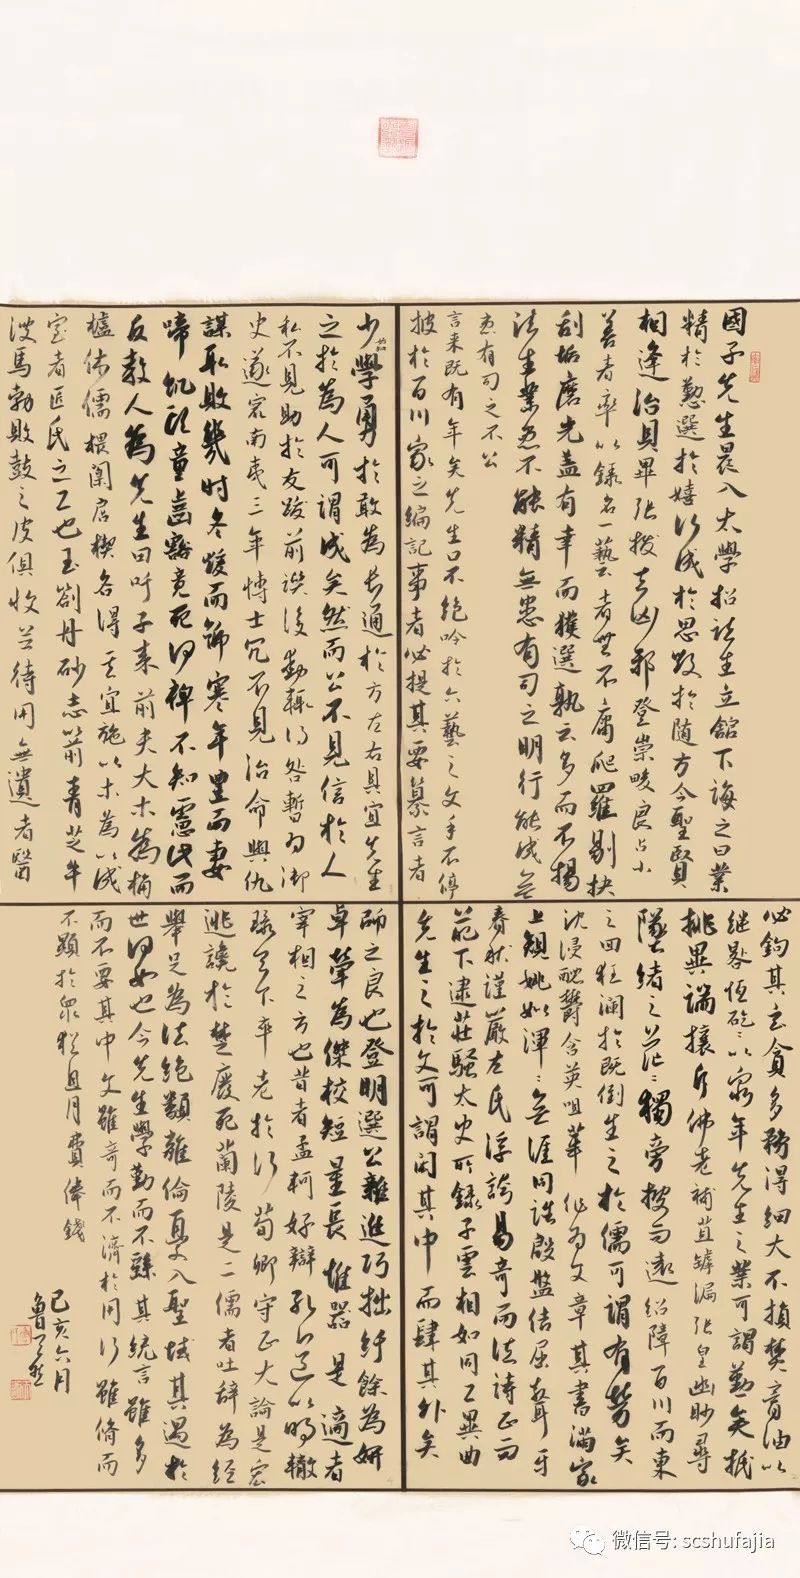 國子先生晨入太學招諸生立館下誨之曰業
精於懃選於嬉行成於思毀於隨方今聖賢
相逢治具畢張拔去凶邪登崇畯良占小
善者率以錄名一藝者無不庸爬羅剔抉
刮垢磨光盖有幸而獲選孰云多而不揚
諸生業患不能精無患有司之明行能成無
患有司之不公
言未既有年矣先生口不絕吟於六藝之文手不停
披於百川家之編記事者必提其要纂言者
必鉤其玄貪多務得細大不損焚膏油以
继晷恆矻矻以窮年先生之業可謂勤矣抵
排異端攘斥佛老補苴罅漏張皇幽眇尋
墜緒之茫茫獨旁搜而遠紹障百川而東
之回狂瀾於既倒生之於儒可謂有勞矣
沈浸醲鬱含英咀華作為文章其書滿家
上規姚姒渾渾無涯周誥殷盤佶屈聱牙
春秋謹嚴左氏浮誇易奇而法詩正而
葩下逮莊騷太史所錄子雲相如同工異曲
先生之於文可謂閎其中而肆其外矣
少學勇於敢為長通於方左右具宜先生
之於為人可謂成矣然而公不見信於人
私不見助於友跋前躓後動輒得咎暫為御
史遂竄南夷三年博士冗不見治命與仇
謀取敗幾時冬煖而號寒年豐而妻
啼飢頭童齒豁竟死何裨不知慮此而
反教人為先生曰吁子來前夫大木為桷
櫨侏儒椳闑扂楔各得其宜施以木為以成
室者匠氏之工也玉劄丹砂赤箭青芝牛
溲馬勃敗鼓之皮俱收並待用無遺者醫
師之良也登明選公雜進巧拙紆餘為妍
卓犖為傑校短量長惟器是適者
宰相之方也昔者孟軻好辯孔道以明轍
環天下卒老於行荀卿守正大論是宏
逃讒於楚廢死蘭陵是二儒者吐辭為經
舉足為法絕類離倫優入聖域其遇於
世何如也今先生學勤而不繇其統言雖多
而不要其中文雖奇而不濟於用行雖脩而
不顯於眾猶且月費俸錢
己亥六月
微信号: scshufajia